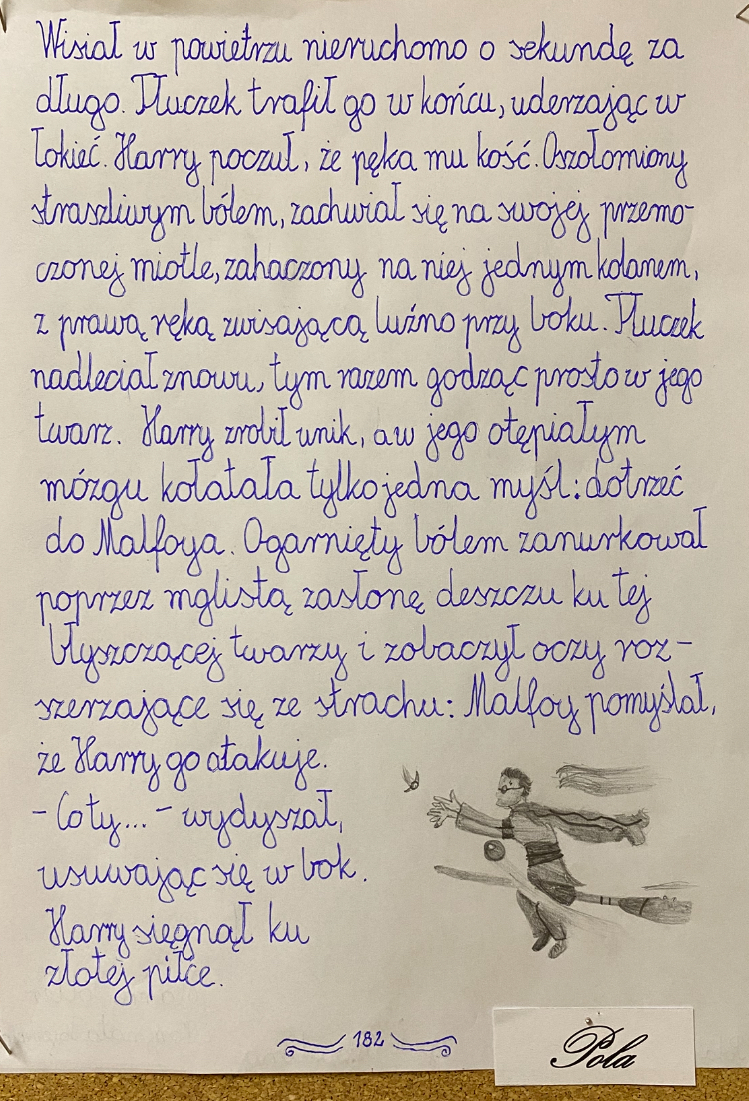 Wisiał w powietrzu nieruchomo o sekundę za
długo. Tłuczek trafił go w końcu, uderzając w
łokieć. Harry poczuł, że pęka mu kość. Oszołomiony
straszliwym bólem, zachwiał się na swojej przemo-
czonej miotle, zahaczony na niej jednym kolanem,
z prawą ręką zwisającą luźno przy boku. Tłuczek
nadleciał znowu, tym razem godząc prosto w jego
twarz. Harry zrobił unik, a w jego otępiałym
mózgu kołatała tylko jedna myśl: dotrzeć
do Malfoya. Ogarnięty bólem zanurkował
poprzez mglistą zasłonę deszczu ku tej
błyszczącej twarzy i zobaczył oczy roz-
szerzające się ze strachu: Malfoy pomyślał,
że Harry go atakuje.
- Co ty... - wydyszał,
usuwając się w bok.
Harry sięgnął ku
złotej piłce.
182
Pola